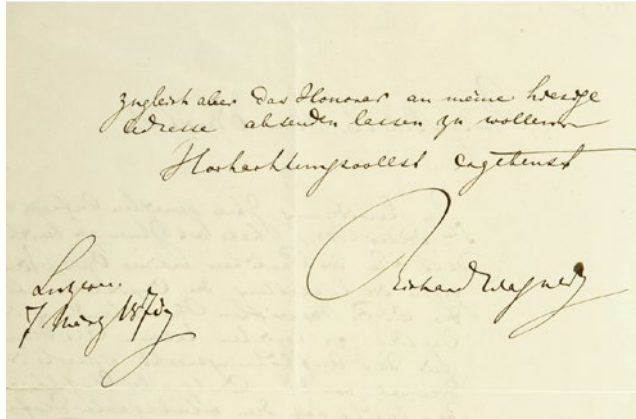 zugleich aber das Honorar an meine hiesige
Adresse absenden lassen zu wollen
Hochachtungsvollst ergebenst
Richard Wagner
Luzern.
7 März 1870